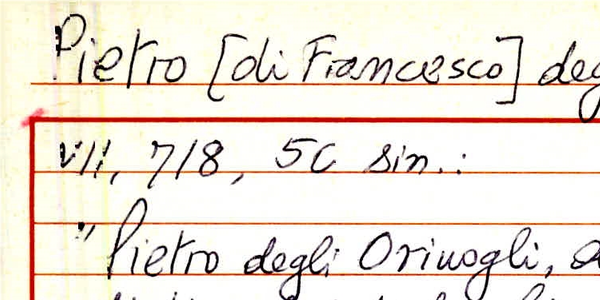 Pietro [di Francesco] deg
VII, 7/8, 5C sin.:
" Pietro degli Orinogli,